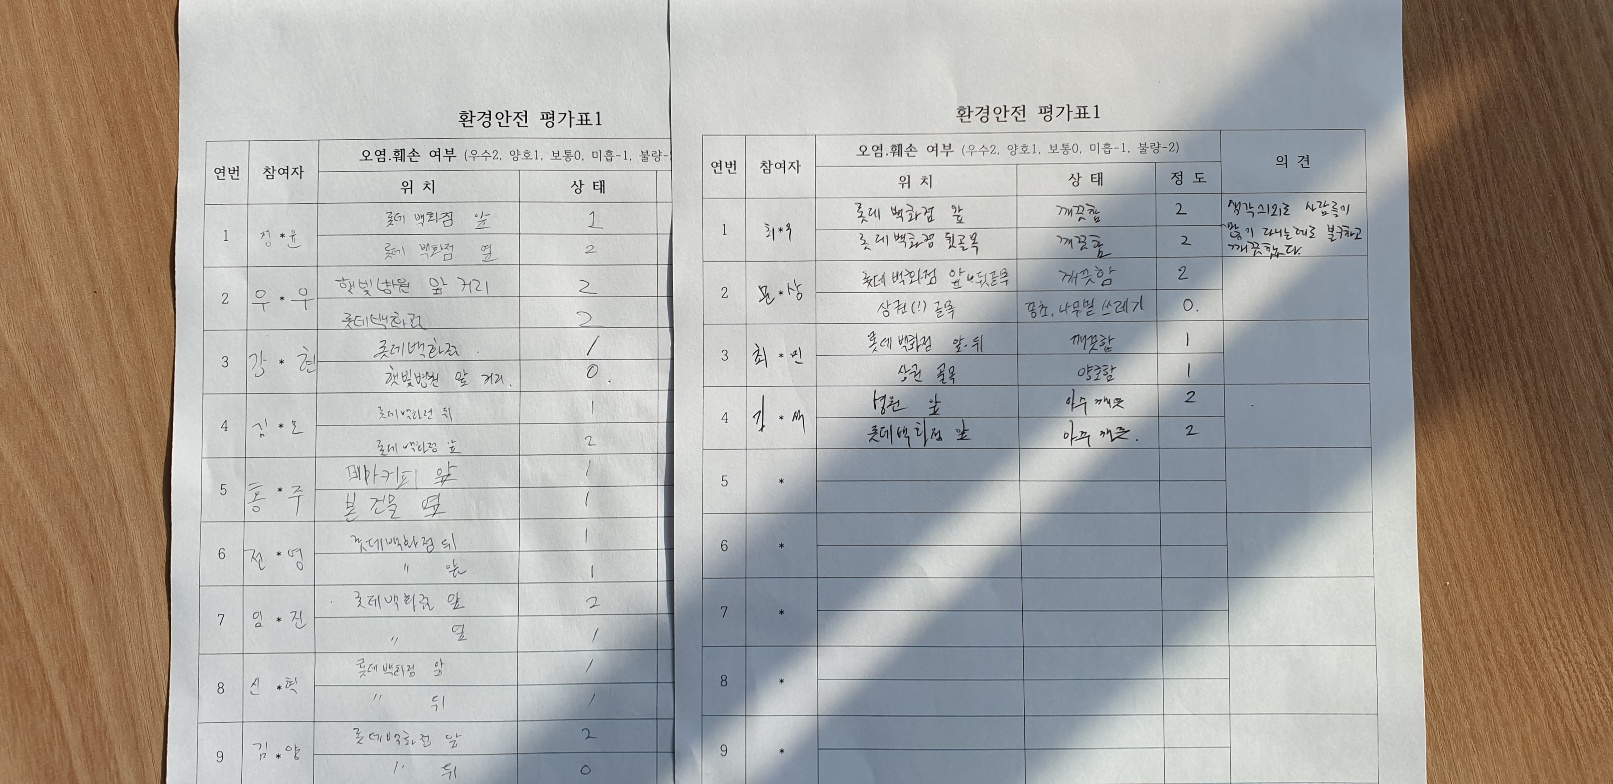 환경안전 평가표1
연번 참여자 오염.훼손 여부 (우수2, 양호1, 보통0, 미흡-1, 불량-
위 치 상 태
1 정*윤 롯데 백화점 앞 1
롯데 백화점 옆 2
2 우*우 햇빛병원 앞 거리 2
롯데백화점 2
3 강*현 롯데백화점. 1
햇빛병원 앞 거리. 0.
4 김*오 롯데백화점 뒤 1
롯데 백화점 앞 2
5 홍*주 메가커피 앞 1
본 건물 옆 1
6 전*영 롯데백화점 뒤 1
" 앞 1
7 임*진 롯데백화점 앞 2
" 옆 1
8 신* 롯데백화점 앞 1
" 뒤 1
9 김*양 롯데백화점 앞 2
" 뒤 0
환경안전 평가표1
연번 참여자 오염.훼손 여부 (우수2, 양호1, 보통0, 미흡-1, 불량-2) 의 견
위 치 상 태 정 도
1 최*우 롯데 백화점 앞 깨끗함 2 생각 의외로 사람들이
롯데 백화점 뒷골목 깨끗함 2 많이 다니는데도 불구하고
깨끗했다.
2 문*상 롯데 백화점 앞 깨끗함 2
상권(!) 골목 꽁초, 나무밑 쓰레기 0.
3 최*민 롯데 백화점 앞.뒤 깨끗함 1
상권 골목 양호함 1
4 김* 병원 앞 아주 깨끗 2
롯데백화점 앞 아주 깨끗. 2
5 *
6 *
7 *
8 *
9 *